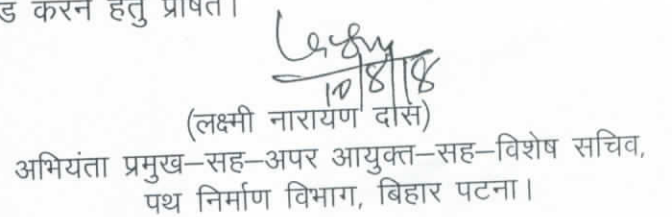 ड करने हेतु प्रेषित।
10/8/18
(लक्ष्मी नारायण दास)
अभियंता प्रमुख–सह–अपर आयुक्त–सह–विशेष सचिव,
पथ निर्माण विभाग, बिहार पटना।